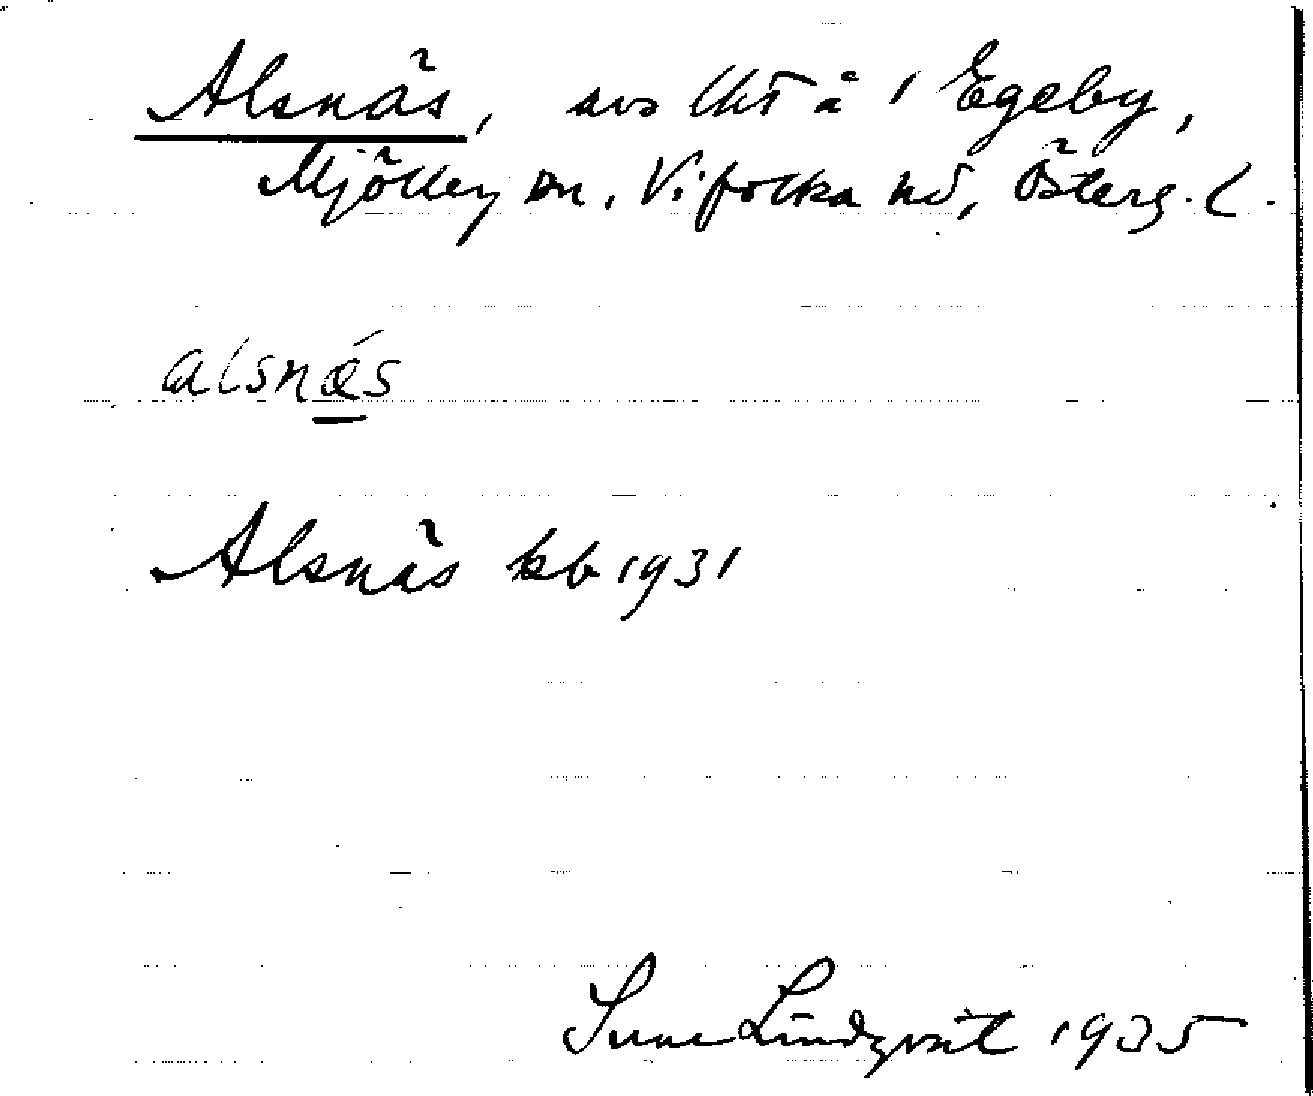 Alsnäs, avs lht å 1 Egeby,
Mjölby sn, Vifolka hd, Österg. l.
alsnǽ̲s
Alsnäs kb 1931
Sune Lindqvist 1935